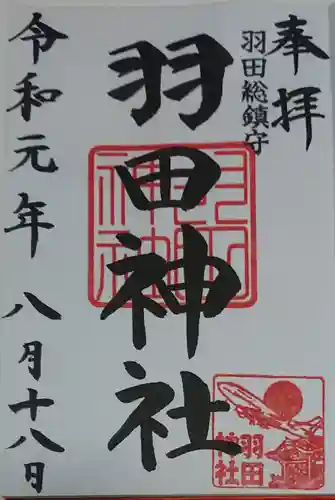 奉拝
羽田総鎮守
羽田神社
令和元年 八月十八日
羽田神社
羽田
神社